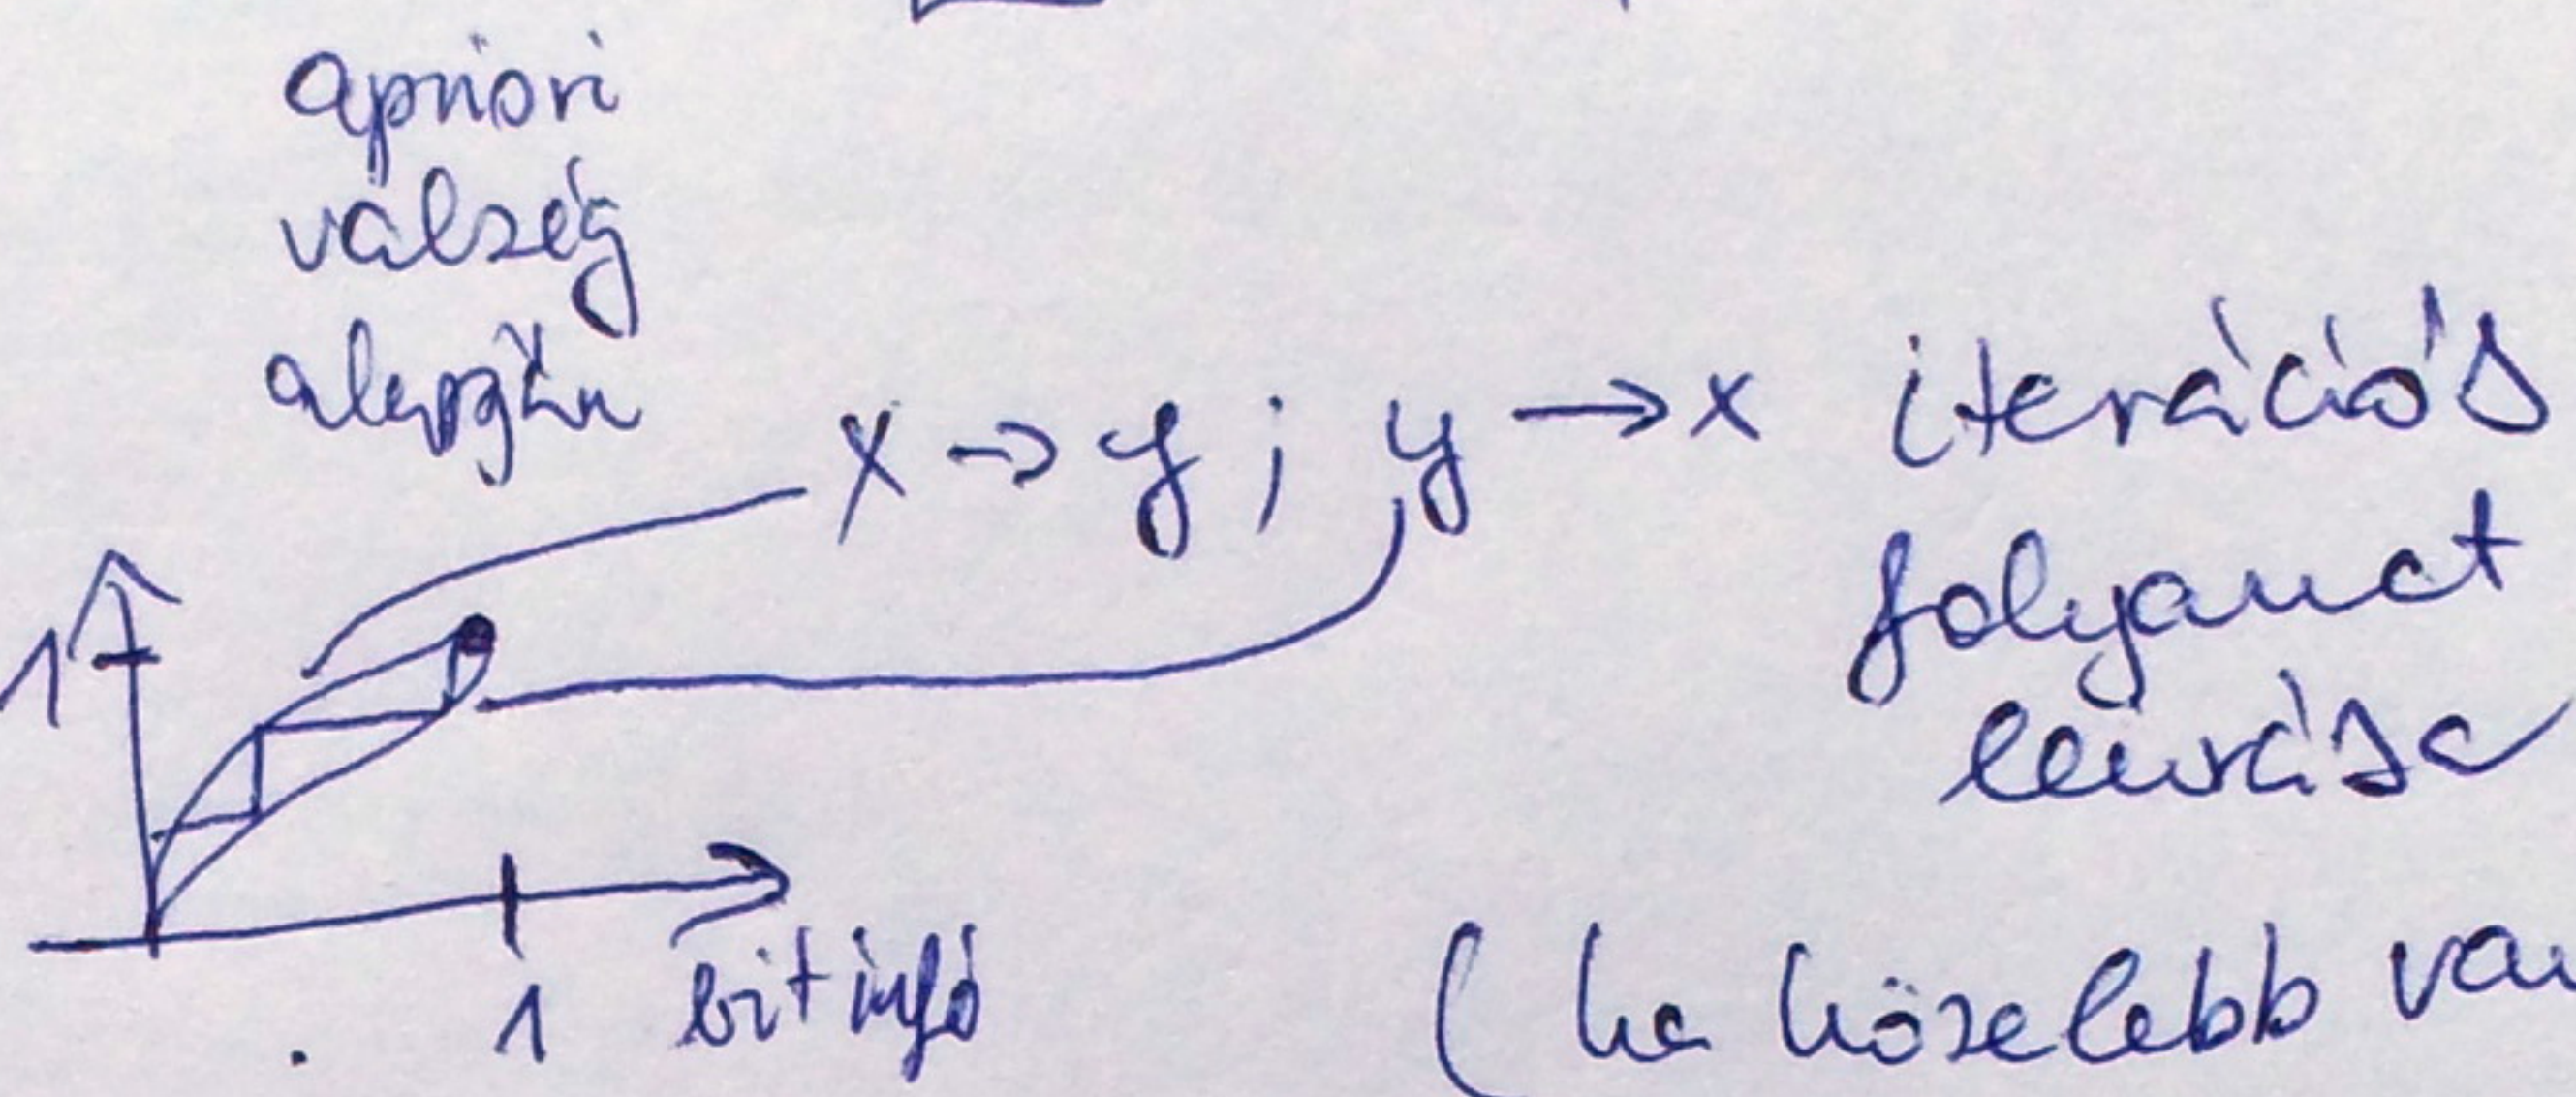 apriori
valség
alapján
x → y ; y → x iterációs
folyamat
leírása
1
1 bit infó
( ha közelebb van